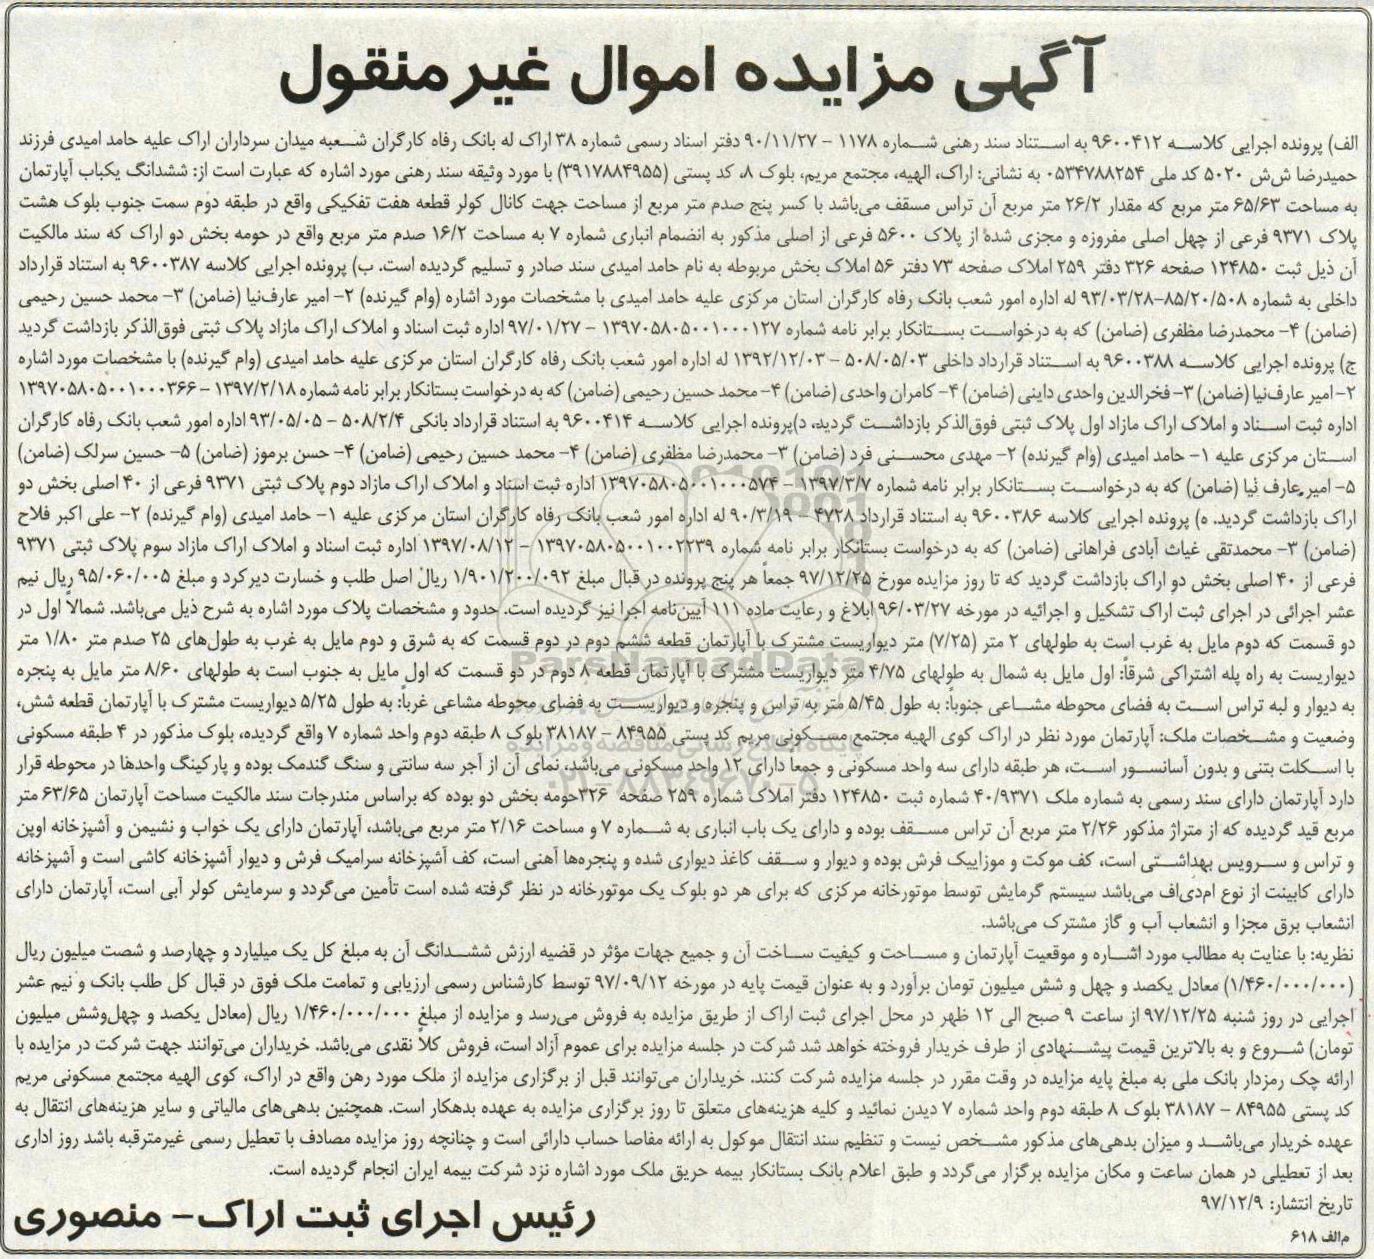 آگهی مزایده اموال غیرمنقول
الف) پرونده اجرایی کلاسه ۹۶۰۰۴۱۲ به استناد سند رهنی شماره ۱۱۷۸ – ۹۰/۱۱/۲۷ دفتر اسناد رسمی شماره ۳۸ اراک له بانک رفاه کارگران شعبه میدان سرداران اراک علیه حامد امیدی فرزند
حمیدرضا ش‌ش ۵۰۲۰ کد ملی ۰۵۳۴۷۸۸۲۵۴ به نشانی: اراک، الهیه، مجتمع مریم، بلوک ۸، کد پستی (۳۹۱۷۸۸۴۹۵۵) با مورد وثیقه سند رهنی مورد اشاره که عبارت است از: ششدانگ یکباب آپارتمان
به مساحت ۶۵/۶۳ متر مربع که مقدار ۲۶/۲ متر مربع آن تراس مسقف می‌باشد با کسر پنج صدم متر مربع از مساحت جهت کانال کولر قطعه هفت تفکیکی واقع در طبقه دوم سمت جنوب بلوک هشت
پلاک ۹۳۷۱ فرعی از چهل اصلی مفروزه و مجزی شده از پلاک ۵۶۰۰ فرعی از اصلی مذکور به انضمام انباری شماره ۷ به مساحت ۱۶/۲ صدم متر مربع واقع در حومه بخش دو اراک که سند مالکیت
آن ذیل ثبت ۱۲۴۸۵۰ صفحه ۳۲۶ دفتر ۲۵۹ املاک صفحه ۷۳ دفتر ۵۶ املاک بخش مربوطه به نام حامد امیدی سند صادر و تسلیم گردیده است. ب) پرونده اجرایی کلاسه ۹۶۰۰۳۸۷ به استناد قرارداد
داخلی به شماره ۸۵/۲۰/۵۰۸–۹۳/۰۳/۲۸ له اداره امور شعب بانک رفاه کارگران استان مرکزی علیه حامد امیدی با مشخصات مورد اشاره (وام گیرنده) ۲- امیر عارف‌نیا (ضامن) ۳- محمد حسین رحیمی
(ضامن) ۴- محمدرضا مظفری (ضامن) که به درخواست بستانکار برابر نامه شماره ۱۳۹۷۰۵۸۰۵۰۰۱۰۰۰۱۲۷ – ۹۷/۰۱/۲۷ اداره ثبت اسناد و املاک اراک مازاد پلاک ثبتی فوق‌الذکر بازداشت گردید
ج) پرونده اجرایی کلاسه ۹۶۰۰۳۸۸ به استناد قرارداد داخلی ۵۰۸/۰۵/۰۳ – ۱۳۹۲/۱۲/۰۳ له اداره امور شعب بانک رفاه کارگران استان مرکزی علیه حامد امیدی (وام گیرنده) با مشخصات مورد اشاره
۲- امیر عارف‌نیا (ضامن) ۳- فخرالدین واحدی داینی (ضامن) ۴- کامران واحدی (ضامن) ۴- محمد حسین رحیمی (ضامن) که به درخواست بستانکار برابر نامه شماره ۱۳۹۷/۲/۱۸ – ۱۳۹۷۰۵۸۰۵۰۰۱۰۰۰۳۶۶
اداره ثبت اسناد و املاک اراک مازاد اول پلاک ثبتی فوق‌الذکر بازداشت گردید، د)پرونده اجرایی کلاسه ۹۶۰۰۴۱۴ به استناد قرارداد بانکی ۵۰۸/۲/۴ – ۹۳/۰۵/۰۵ اداره امور شعب بانک رفاه کارگران
استان مرکزی علیه ۱- حامد امیدی (وام گیرنده) ۲- مهدی محسنی فرد (ضامن) ۳- محمدرضا مظفری (ضامن) ۴- محمد حسین رحیمی (ضامن) ۴- حسن برموز (ضامن) ۵- حسین سرلک (ضامن)
۵- امیر عارف نیا (ضامن) که به درخواست بستانکار برابر نامه شماره ۱۳۹۷/۳/۷ – ۱۳۹۷۰۵۸۰۵۰۰۱۰۰۰۵۷۴ اداره ثبت اسناد و املاک اراک مازاد دوم پلاک ثبتی ۹۳۷۱ فرعی از ۴۰ اصلی بخش دو
اراک بازداشت گردید. ه) پرونده اجرایی کلاسه ۹۶۰۰۳۸۶ به استناد قرارداد ۴۷۲۸ – ۹۰/۳/۱۹ له اداره امور شعب بانک رفاه کارگران استان مرکزی علیه ۱- حامد امیدی (وام گیرنده) ۲- علی اکبر فلاح
(ضامن) ۳- محمدتقی غیاث آبادی فراهانی (ضامن) که به درخواست بستانکار برابر نامه شماره ۱۳۹۷۰۵۸۰۵۰۰۱۰۰۲۲۳۹ – ۱۳۹۷/۰۸/۱۲ اداره ثبت اسناد و املاک اراک مازاد سوم پلاک ثبتی ۹۳۷۱
فرعی از ۴۰ اصلی بخش دو اراک بازداشت گردید که تا روز مزایده مورخ ۹۷/۱۲/۲۵ جمعاً هر پنج پرونده در قبال مبلغ ۱/۹۰۱/۲۰۰/۰۹۲ ریال اصل طلب و خسارت دیرکرد و مبلغ ۹۵/۰۶۰/۰۰۵ ریال نیم
عشر اجرائی در اجرای ثبت اراک تشکیل و اجرائیه در مورخه ۹۶/۰۳/۲۷ ابلاغ و رعایت ماده ۱۱۱ آیین‌نامه اجرا نیز گردیده است. حدود و مشخصات پلاک مورد اشاره به شرح ذیل می‌باشد. شمالاً اول در
دو قسمت که دوم مایل به غرب است به طولهای ۲ متر (۷/۲۵) متر دیواریست مشترک با آپارتمان قطعه ششم دوم در دوم قسمت که به شرق و دوم مایل به غرب به طول‌های ۲۵ صدم متر ۱/۸۰ متر
دیواریست به راه پله اشتراکی شرقاً: اول مایل به شمال به طولهای ۴/۷۵ متر دیواریست مشترک با آپارتمان قطعه ۸ دوم در دو قسمت که اول مایل به جنوب است به طولهای ۸/۶۰ متر مایل به پنجره
به دیوار و لبه تراس است به فضای محوطه مشاعی جنوباً: به طول ۵/۴۵ متر به تراس و پنجره و دیواریست به فضای محوطه مشاعی غرباً: به طول ۵/۲۵ دیواریست مشترک با آپارتمان قطعه شش،
وضعیت و مشخصات ملک: آپارتمان مورد نظر در اراک کوی الهیه مجتمع مسکونی مریم کد پستی ۸۴۹۵۵ – ۳۸۱۸۷ بلوک ۸ طبقه دوم واحد شماره ۷ واقع گردیده، بلوک مذکور در ۴ طبقه مسکونی
با اسکلت بتنی و بدون آسانسور است، هر طبقه دارای سه واحد مسکونی و جمعا دارای ۱۲ واحد مسکونی می‌باشد، نمای آن از آجر سه سانتی و سنگ گندمک بوده و پارکینگ واحدها در محوطه قرار
دارد آپارتمان دارای سند رسمی به شماره ملک ۴۰/۹۳۷۱ شماره ثبت ۱۲۴۸۵۰ دفتر املاک شماره ۲۵۹ صفحه ۳۲۶حومه بخش دو بوده که براساس مندرجات سند مالکیت مساحت آپارتمان ۶۳/۶۵ متر
مربع قید گردیده که از متراژ مذکور ۲/۲۶ متر مربع آن تراس مسقف بوده و دارای یک باب انباری به شماره ۷ و مساحت ۲/۱۶ متر مربع می‌باشد، آپارتمان دارای یک خواب و نشیمن و آشپزخانه اوپن
و تراس و سرویس بهداشتی است، کف موکت و موزاییک فرش بوده و دیوار و سقف کاغذ دیواری شده و پنجره‌ها آهنی است، کف آشپزخانه سرامیک فرش و دیوار آشپزخانه کاشی است و آشپزخانه
دارای کابینت از نوع ام‌دی‌اف می‌باشد سیستم گرمایش توسط موتورخانه مرکزی که برای هر دو بلوک یک موتورخانه در نظر گرفته شده است تأمین می‌گردد و سرمایش کولر آبی است، آپارتمان دارای
انشعاب برق مجزا و انشعاب آب و گاز مشترک می‌باشد.
نظریه: با عنایت به مطالب مورد اشاره و موقعیت آپارتمان و مساحت و کیفیت ساخت آن و جمیع جهات مؤثر در قضیه ارزش ششدانگ آن به مبلغ کل یک میلیارد و چهارصد و شصت میلیون ریال
(۱/۴۶۰/۰۰۰/۰۰۰) معادل یکصد و چهل و شش میلیون تومان برآورد و به عنوان قیمت پایه در مورخه ۹۷/۰۹/۱۲ توسط کارشناس رسمی ارزیابی و تمامت ملک فوق در قبال کل طلب بانک و نیم عشر
اجرایی در روز شنبه ۹۷/۱۲/۲۵ از ساعت ۹ صبح الی ۱۲ ظهر در محل اجرای ثبت اراک از طریق مزایده به فروش می‌رسد و مزایده از مبلغ ۱/۴۶۰/۰۰۰/۰۰۰ ریال (معادل یکصد و چهل‌وشش میلیون
تومان) شروع و به بالاترین قیمت پیشنهادی از طرف خریدار فروخته خواهد شد شرکت در جلسه مزایده برای عموم آزاد است، فروش کلاً نقدی می‌باشد. خریداران می‌توانند جهت شرکت در مزایده با
ارائه چک رمزدار بانک ملی به مبلغ پایه مزایده در وقت مقرر در جلسه مزایده شرکت کنند. خریداران می‌توانند قبل از برگزاری مزایده از ملک مورد رهن واقع در اراک، کوی الهیه مجتمع مسکونی مریم
کد پستی ۸۴۹۵۵ – ۳۸۱۸۷ بلوک ۸ طبقه دوم واحد شماره ۷ دیدن نمائید و کلیه هزینه‌های متعلق تا روز برگزاری مزایده به عهده بدهکار است. همچنین بدهی‌های مالیاتی و سایر هزینه‌های انتقال به
عهده خریدار می‌باشد و میزان بدهی‌های مذکور مشخص نیست و تنظیم سند انتقال موکول به ارائه مفاصا حساب دارائی است و چنانچه روز مزایده مصادف با تعطیل رسمی غیرمترقبه باشد روز اداری
بعد از تعطیلی در همان ساعت و مکان مزایده برگزار می‌گردد و طبق اعلام بانک بستانکار بیمه حریق ملک مورد اشاره نزد شرکت بیمه ایران انجام گردیده است.
تاریخ انتشار: ۹۷/۱۲/۹
رئیس اجرای ثبت اراک- منصوری
م‌الف ۶۱۸
ParsNamadData
پایگاه اطلاع رسانی مناقصه و مزایده